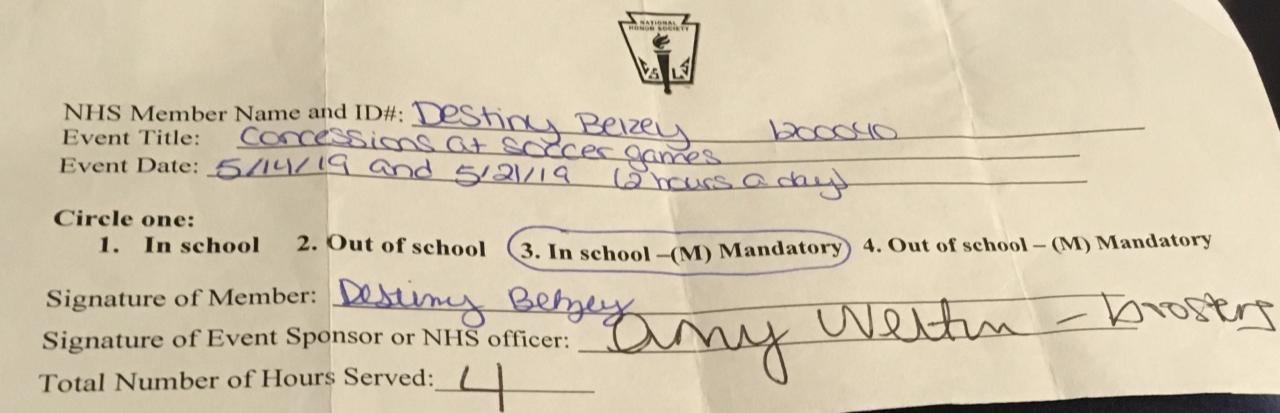 NATIONAL
HONOR SOCIETY
C S L S
NHS Member Name and ID#: Destiny Belzey 1200040
Event Title: Concessions at soccer games
Event Date: 5/14/19 and 5/21/19 (2 hours a day)
Circle one:
1. In school 2. Out of school 3. In school –(M) Mandatory 4. Out of school – (M) Mandatory
Signature of Member: Destiny Belzey
Signature of Event Sponsor or NHS officer: Amy Weltin -
Total Number of Hours Served: 4